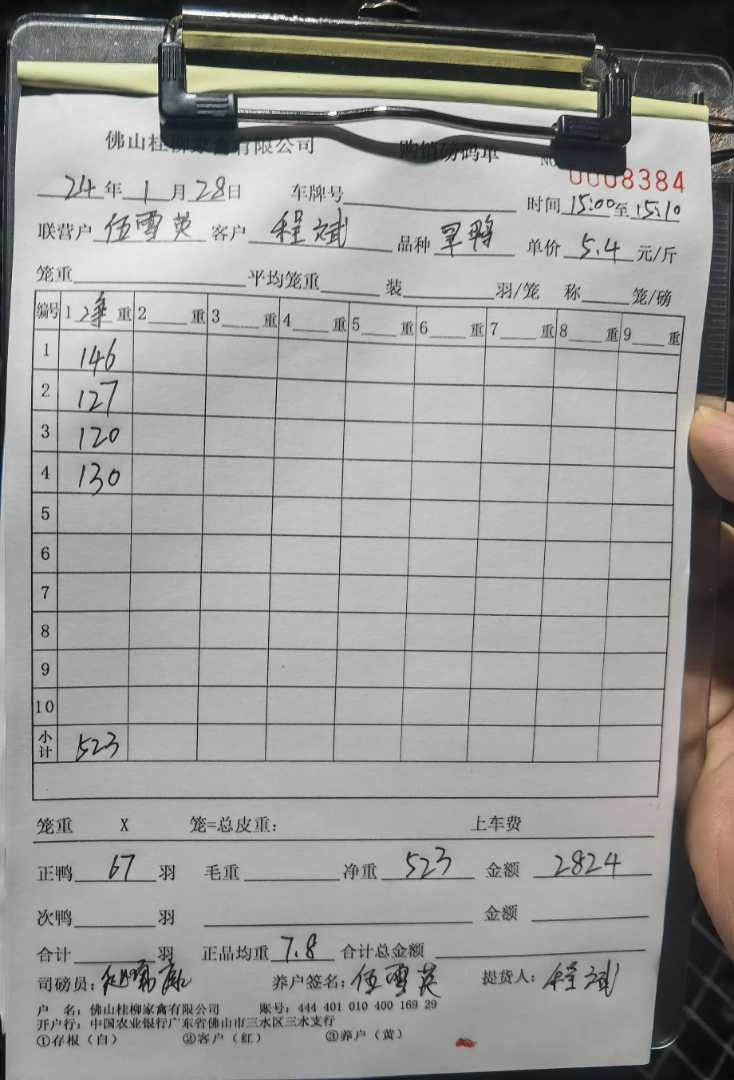 佛山桂柳家禽有限公司 购销磅码单 NO 0008384
24年1月28日 车牌号 时间15:00至15:10
联营户 伍雪英 客户 程斌 品种 旱鸭 单价 5.4 元/斤
笼重 平均笼重 装 羽/笼 称 笼/磅
编号 1 净重 2 重 3 重 4 重 5 重 6 重 7 重 8 重 9 重
1 146
2 127
3 120
4 130
5
6
7
8
9
10
小计 523
笼重 X 笼=总皮重: 上车费
正鸭 67 羽 毛重 净重 523 金额 2824
次鸭 羽 金额
合计 羽 正品均重 7.8 合计总金额
司磅员: 养户签名: 伍雪英 提货人: 程斌
户 名: 佛山桂柳家禽有限公司 账号: 444 401 010 400 169 29
开户行: 中国农业银行广东省佛山市三水区三水支行
①存根(白) ②客户(红) ③养户(黄)